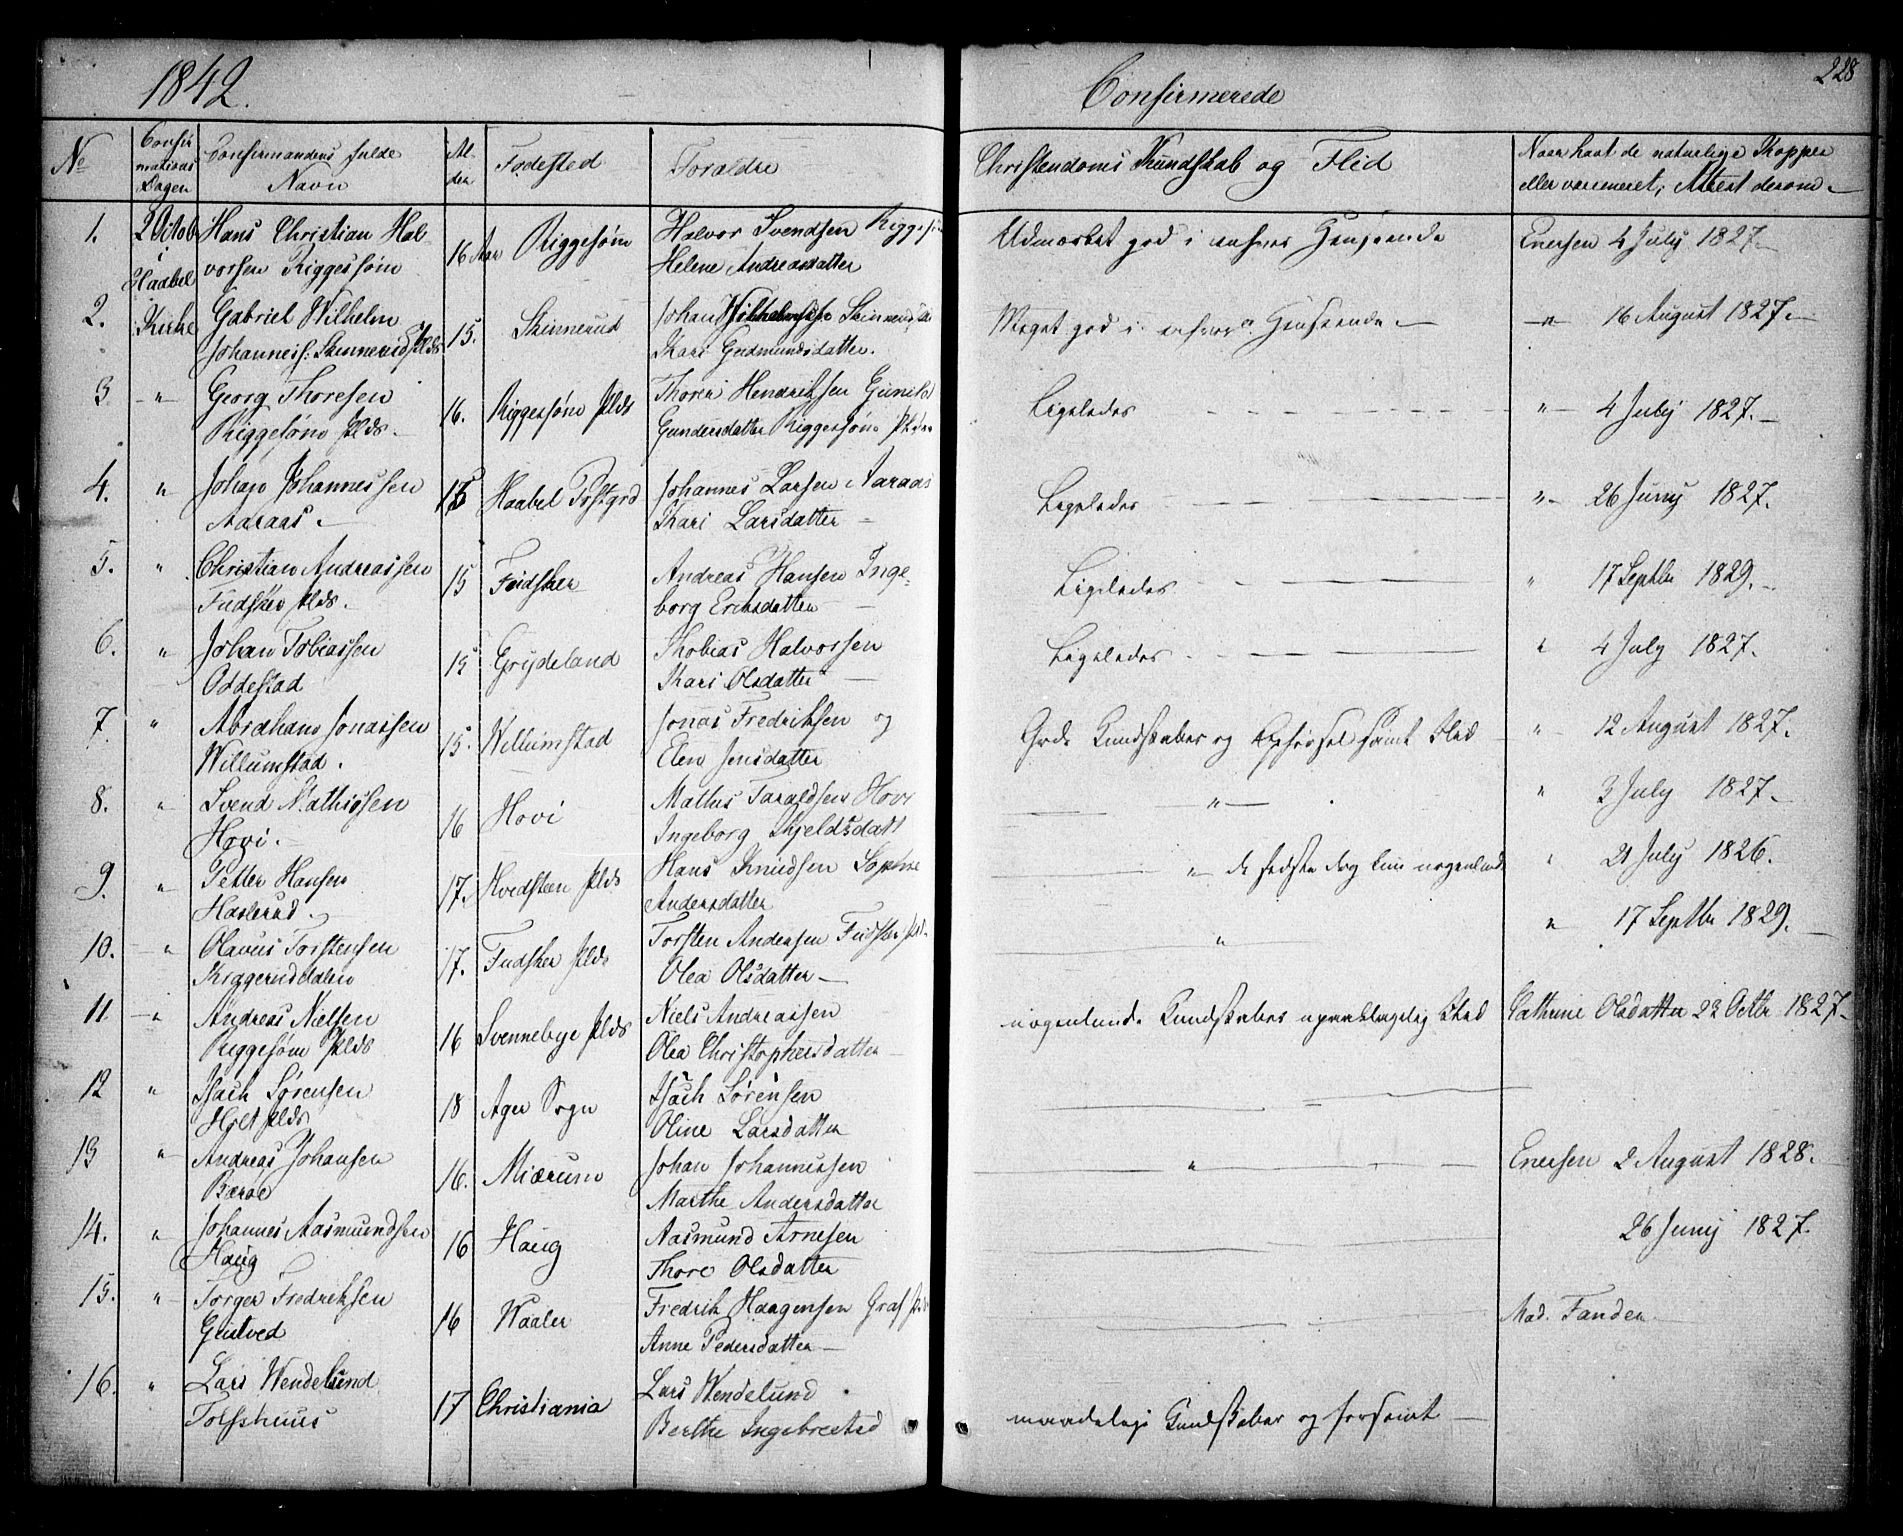 1842.
Confirmerede
228
No
Confir
mations
Dagen
Confirmandens fulde
Navn
Al-
der
Fødested
Forældre
Christendoms Kundskab og Flid
Naar havt de naturlige Kopper
eller vaccineret, Attest derom
1.
2 Octob
i
Haabøl
Kirke
Hans Christian Hal-
vorsen Riggesøm
16 Aar
Riggesøm
Halvor Svendsen
Helene Andreasdatter
Udmærket god i enhver Henseende
Enersen 4 July 1827.
2.
Gabriel Wilhelm
Johanness: Skinnerud Plds
15.
Skinnerud
Johan
Kari Gudmundsdatter.
Meget god i enhver Henseende
" 16 August 1827.
3
"
Georg Thoresen
Riggesøm Plds.
16.
Riggesøm Plds
Thorer Hendriksen
Gundersdatter Riggesøm
Ligeledes
" 4 July 1827.
4.
"
Johan Johannessen
Aaraas.
Haabøl Præstgrd
Johannes Larsen Aaraas
Kari Larsdatter
Ligeledes
" 26 Juny 1827.
5.
"
Christian Andreassen
Fudsker Plds.
15
Fudsker
Andreas Hansen Inge-
borg Ericsdatter
Ligeledes
" 17 Septbr 1829.
6.
"
Johan Tobiassen
Oddestad
15
Grydeland
Thobias Halvorsen
Kari Olsdatter
Ligeledes
" 4 July 1827.
7.
"
Abraham Jonassen
Willumstad.
15.
Willumstad
Jonas Fredriksen og
Elen Jensdatter
Gode Kundskaber og Opførsel samt Flid
" 12 August 1827.
8.
"
Svend Mathissen
Hovi.
16
Hovi
Mathis Taraldsen Hovi
Ingeborg Kjeldsdatt
"
" 3 July 1827.
9.
"
Petter Hansen
Haslerud.
17.
Kvedsteen Plds
Hans Knudsen Sophie
Andersdatter
"
" 21 July 1826.
10.
"
Olavus Torstensen
Kraggeruddalen
17.
Fudsker Plds
Torsten Andersen Fudsker Pld.
Olea Olsdatter
"
" 17 Septbr 1829.
11.
"
Andreas Nielsen
Riggesøm Plds
16
Svennebye Plds
Niels Andreassen
Olea Christophersdatter
nogenlunde Kundskaber upaaklagelig Flid
Cathrine Olsdatter 22 Octbr 1827.
12
"
Isach Sørensen
Holt Plds
18
Ager Sogn
Isach Sørensen
Oline Larsdatter
13
"
Andreas Johansen
Barøe
16.
Miærum
Johan Johannessen
Marthe Andersdatter
"
Enersen 2 August 1828.
14.
"
Johannes Aasmundsen
Haug
16
Haug
Aasmund Arnesen
Thore Olsdatter
26 Juny 1827.
15.
"
Torger Fredriksen
Gutved
16
Waaler
Fredrik Haagensen Graf
Anne Pedersdatter
Mad. Fanden
16.
"
Lars Wendelund
Tofshuus
17
Christiania
Lars Wendelund
Berthe Ingebretsd
maadelige Kundskaber og forsømt